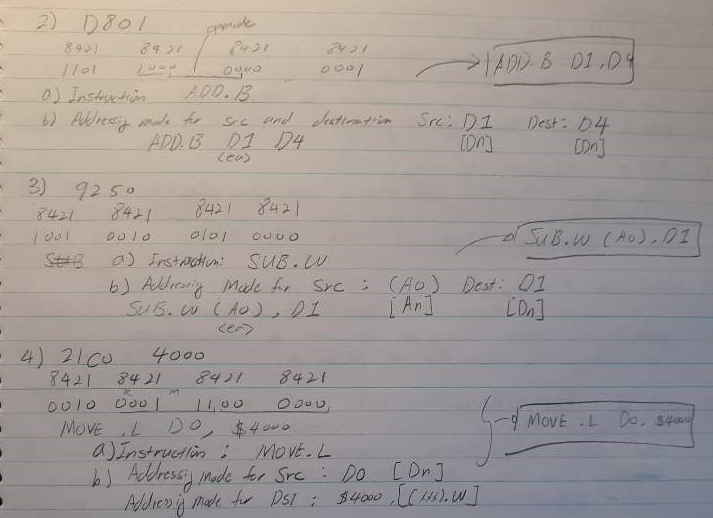 2) D801 opmode
8421 8421 8421 8421
1101 1000 0000 0001
→ ADD.B D1, D4
a) Instruction ADD.B
b) Addressig mode for src and destination Src: D1 Dest: D4
ADD.B D1 D4 [Dn] [Dn]
(ea)
3) 9250
8421 8421 8421 8421
1001 0010 0101 0000
SUB.W (A0), D1
SUB a) Instruction: SUB.W
b) Addressig Mode for Src : (A0) Dest: D1
SUB.W (A0), D1 [An] [Dn]
(ea)
4) 21C0 4000
8421 8421 8421 8421
R m
0010 0001 11,00 0000,
MOVE .L D0, $4000
MOVE .L D0. $4000
a) Instruction : MOVE.L
b) Addressig mode for Src : D0 [Dn]
Addressig mode for DST : $4000, [(xxx).W]